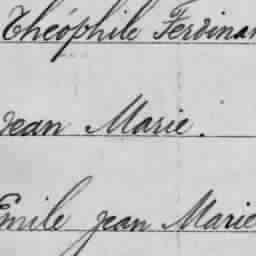 Théophile Ferdinan
Jean Marie.
Emile Jean Marie